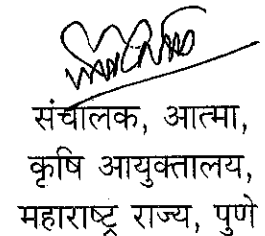 संचालक, आत्मा,
कृषि आयुक्तालय,
महाराष्ट्र राज्य, पुणे